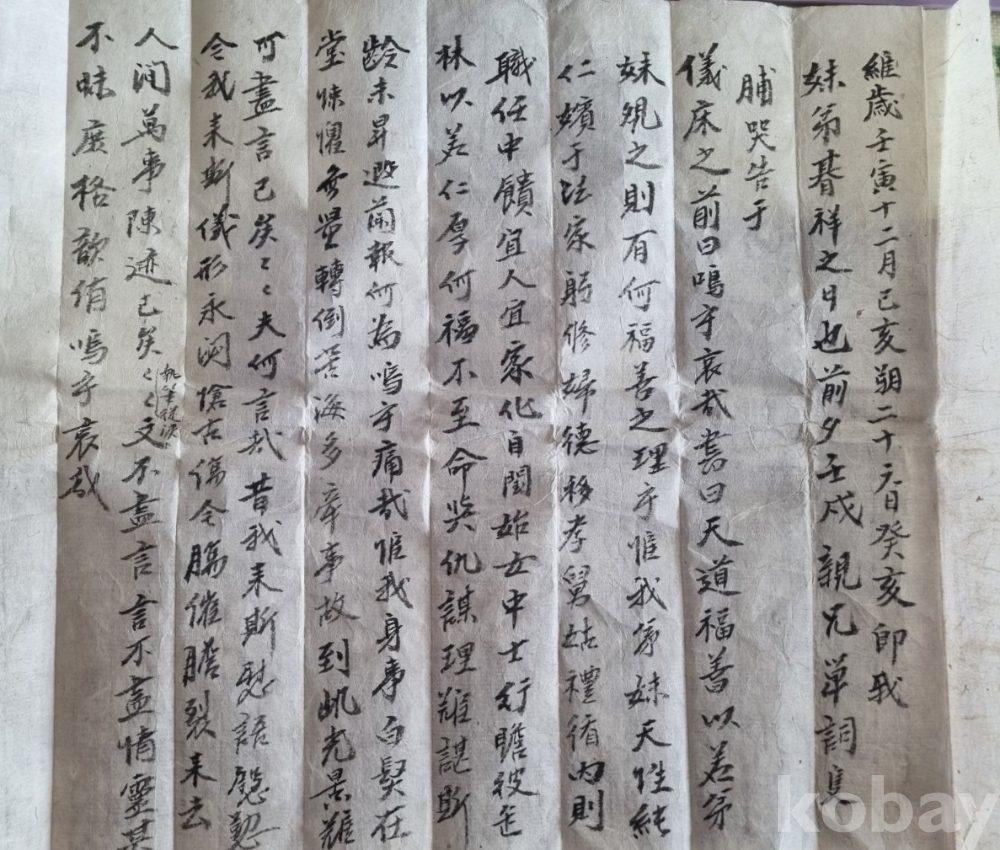 維歲壬寅十二月己亥朔二十五日癸亥卽我
妹弟朞祥之日也前夕壬戌親兄單詞隻
脯哭告于
儀床之前曰嗚乎哀哉書曰天道福善以若弟
妹觀之則有何福善之理乎惟我弟妹天性純
仁嬪于法家躬修婦德移孝舅姑禮循內則
職任中饋宜人宜家化自閨始女中士行瞻彼
林以若仁厚何福不至命與仇謀理難諶斯
齡未昇遐爾報何爲嗚乎痛哉惟我身事白髮在
堂悚懼無量轉倒苦海多牽事故到此光景難
可盡言已矣〻〻夫何言哉昔我來斯慰語慇懃
今我來斯儀形永閟愴古傷今膓催膽裂來去
人間萬事陳迹已矣〻〻文不盡言言不盡情靈其
不昧庶格歆侑嗚乎哀哉
kobay